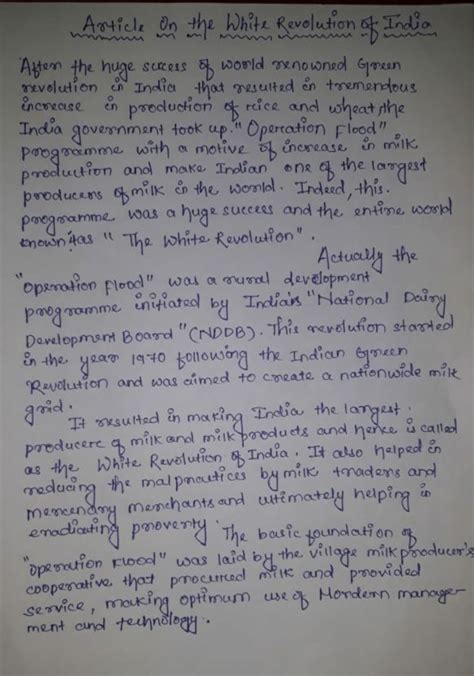 Article On the White Revolution of India
After the huge success of world renowned Green
revolution in India that resulted in tremendous
increase in production of rice and wheat, the
India government took up "Operation Flood"
programme with a motive of increase in milk
production and make Indian one of the largest
producers of milk in the world. Indeed, this
programme was a huge success and the entire world
known as "The White Revolution".
Actually the
"Operation Flood" was a rural development
programme initiated by Indian's "National Dairy
Development Board" (NDDB). This revolution started
in the year 1970 following the Indian Green
Revolution and was aimed to create a nationwide milk
grid.
It resulted in making India the largest
producerc of milk and milk products and hence is called
as the White Revolution of India. It also helped in
reducing the malpractices by milk traders and
mercenary merchants and ultimately helping in
eradicating proverty. The basic foundation of
"Operation Flood" was laid by the village milk producer's
cooperative that procured milk and provided
service, making optimum use of Mordern manage-
ment and technology.